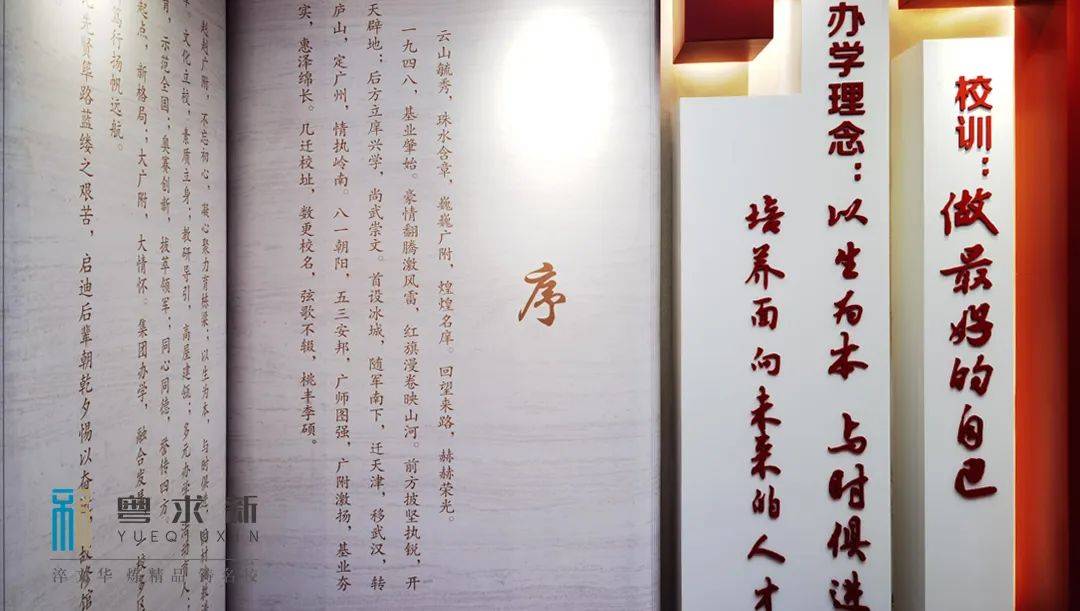 校训：做最好的自己
办学理念：以生为本 与时俱进
培养面向未来的人才
序
云山毓秀，珠水含章，巍巍广附，煌煌名庠。回望来路，赫赫荣光。
一九四八，基业肇始。豪情翻腾激风雷，红旗漫卷映山河。前方披坚执锐，开
天辟地；后方立庠兴学，尚武崇文。首设冰城，随军南下，迁天津，移武汉，转
庐山，定广州，情执岭南。八一朝阳，五三安邦，广师图强，广附激扬，基业夯
实，惠泽绵长。几迁校址，数更校名，弦歌不辍，桃丰李硕。
赳赳广附，不忘初心，凝心聚力育栋梁；以生为本，与时俱进
文化立校，素质立身；教研导引，高屋建瓴；多元办学
育，示范全国；奥赛创新，拔萃领军；同心同德，誉传四方
起点，新格局；大广附，大情怀。集团办学，融合发
笃行扬帆远航。
先贤筚路蓝缕之艰苦，启迪后辈朝乾夕惕以奋
粤求新
YUEQIUXIN
淬文华 炼精品 铸名校